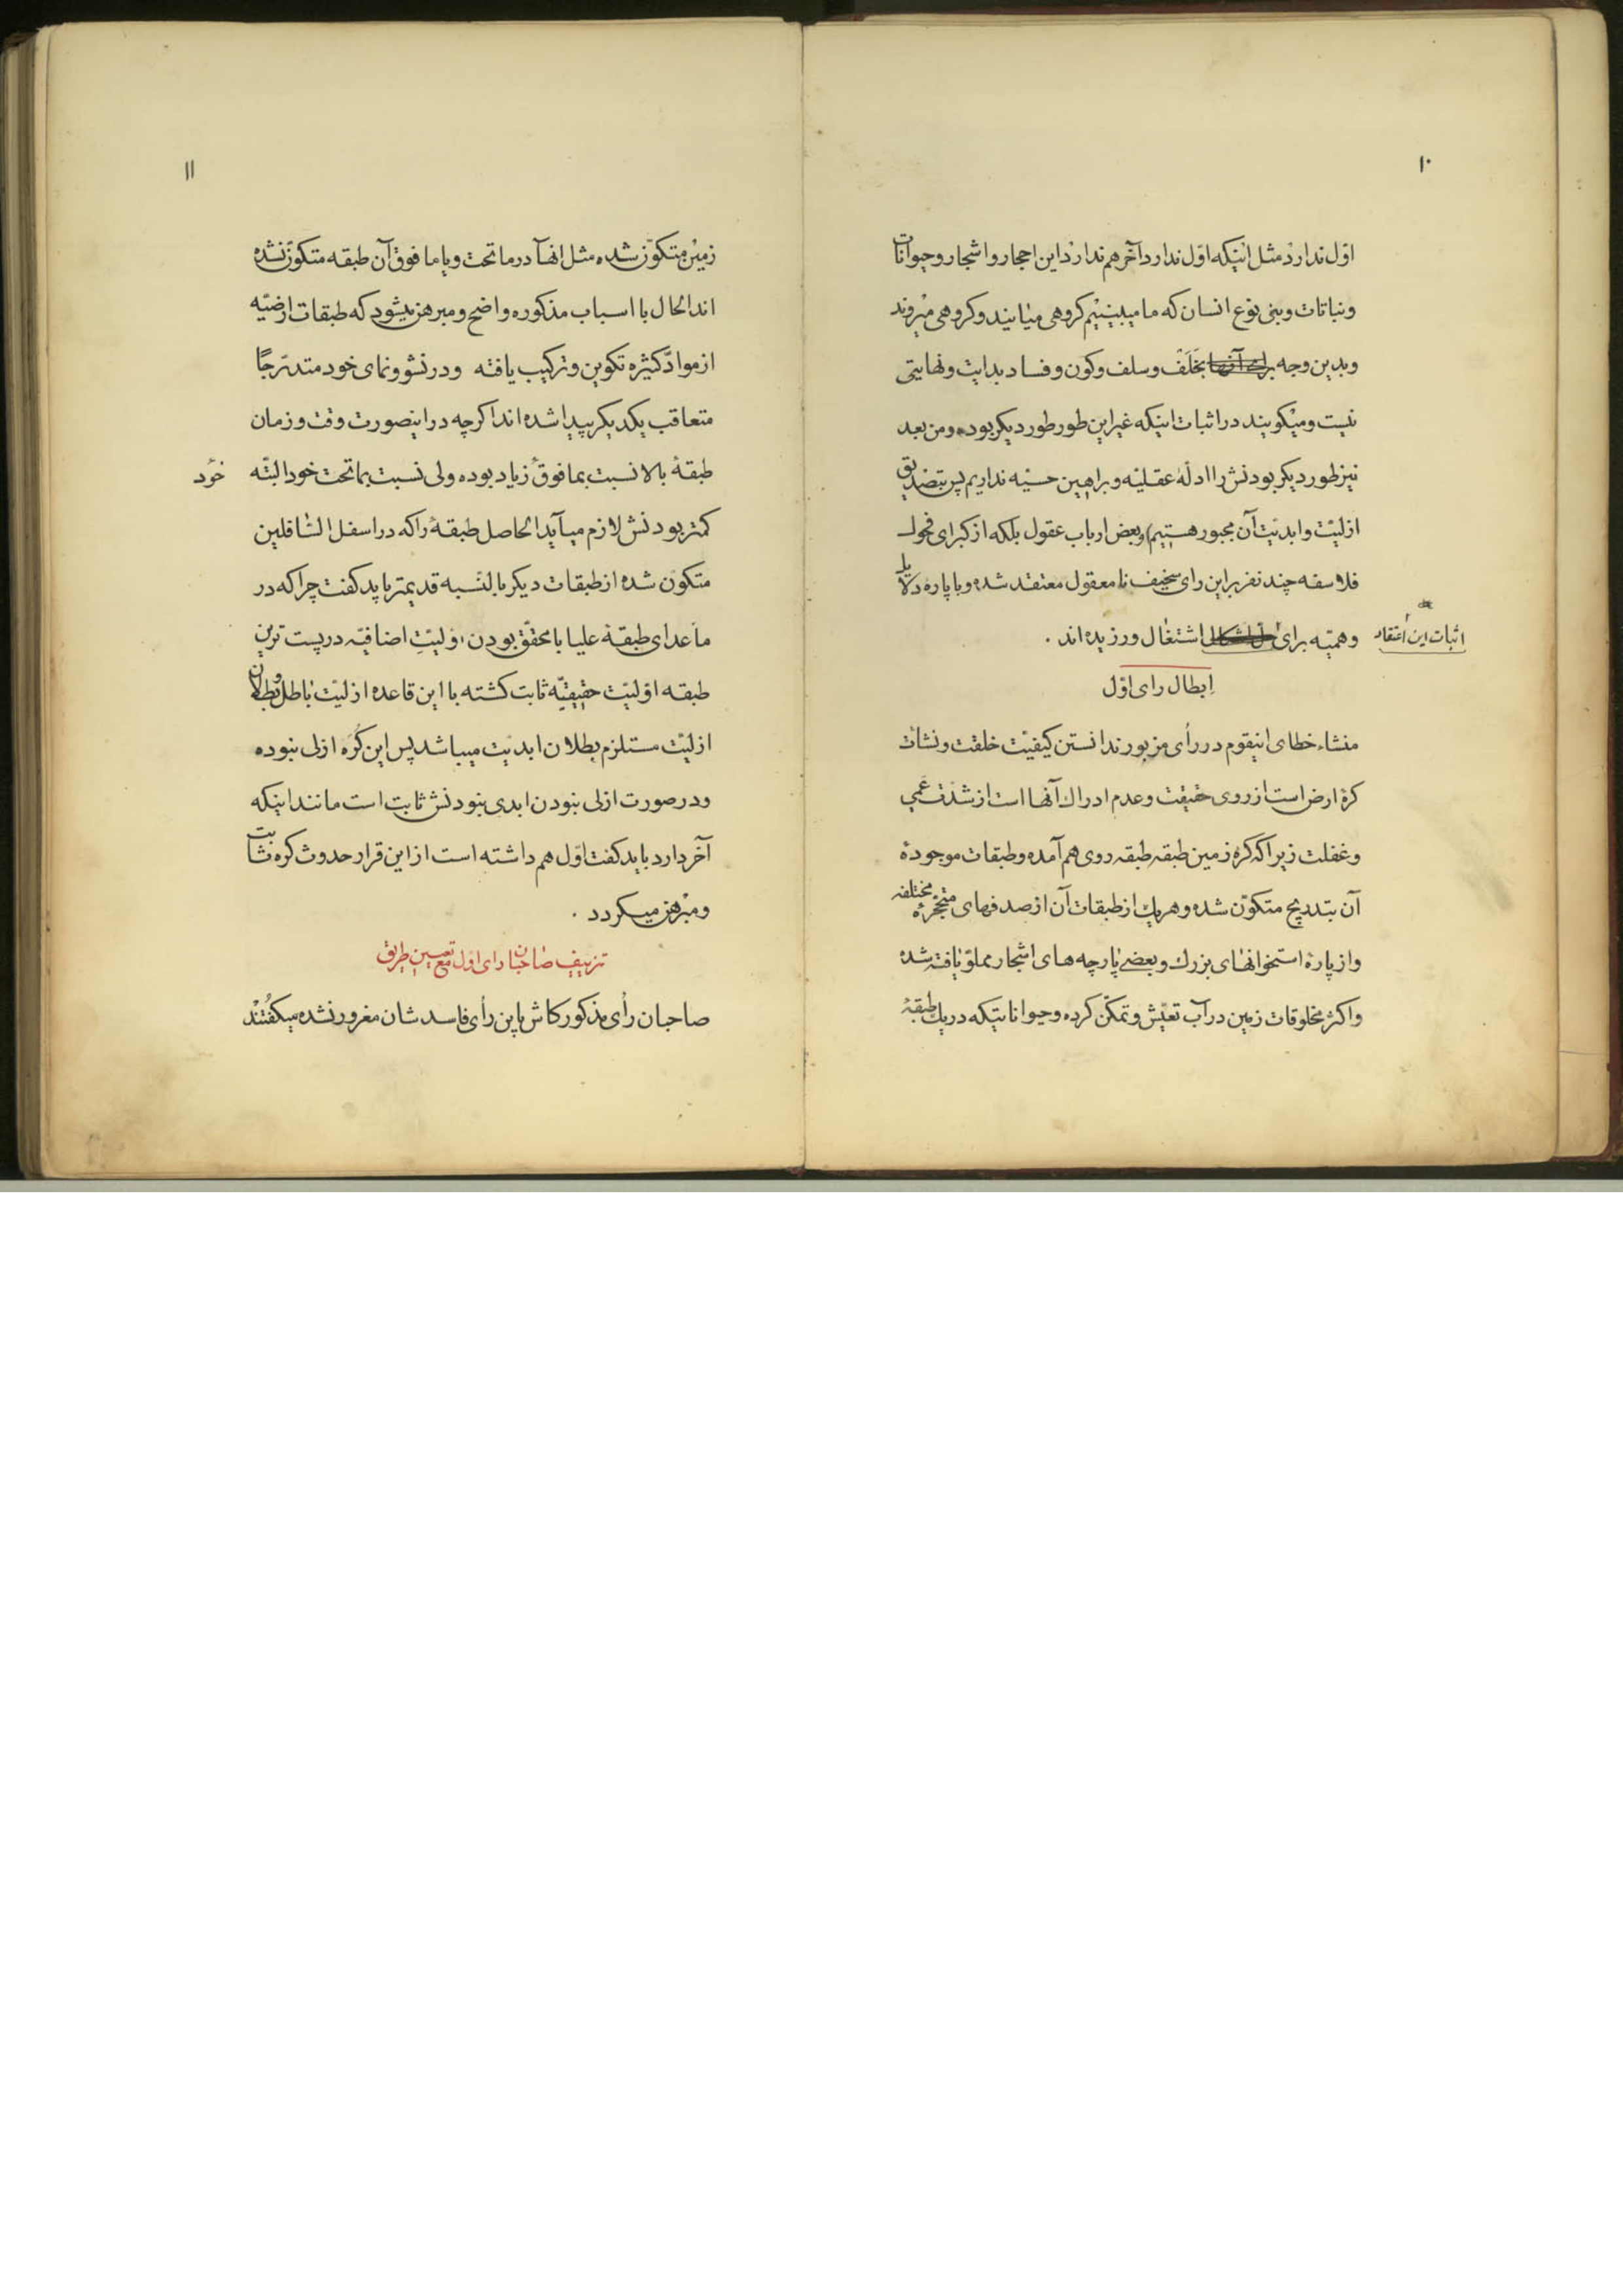 ۱۰
اوّل ندارد مثل اینکه اوّل ندارد آخر هم ندارد این احجار و اشجار و حیوانات
و نباتات و بنی نوع انسان که ما میبینیم کروهی میایند و کروهی میروند
و بدین وجه برای آنها بخَلَف و سلف و کون و فساد بدایت و نهایتی
نیست و میکویند در اثبات اینکه غیر این طور طور دیکر بوده و من بعد
نیز طور دیکر بودنش را ادلّهٔ عقلیّه و براهین حسّیّه نداریم پس بتصدیق
ازلیّت و ابدیّت آن مجبور هستیم) و بعض ارباب عقول بلکه از کبرای فحول
فلاسفه چند نفر بر این رای سخیف نامعقول معتقد شده و با پاره دلایل
وهمیّه برای حلّ اشکال اشتغال ورزیده اند .
اثبات این اعتقاد
ابطال رای اوّل
منشاء خطای اینقوم در رأی مزبور ندانستن کیفیّت خلقت و نشات
کرهٔ ارض است از روی حقیقت و عدم ادراك آنها است از شدّت عمی
و غفلت زیرا که کرهٔ زمین طبقه طبقه روی هم آمده و طبقات موجودهٔ
آن بتدریج متکوّن شده و هر یك از طبقات آن از صدفهای متحجّرهٔ مختلفه
و از پارهٔ استخوانهای بزرك و بعضی پارچه های اشجار مملوّ یافته شده
و اکثر مخلوقات زمین در آب تعیّش و تمکّن کرده و حیواناتیکه در یك طبقهٔ
۱۱
زمین متکوّن شده مثل انها در ماتحت و یا مافوق آن طبقه متکوّن نشده
اند الحال با اسباب مذکوره واضح و مبرهن میشود که طبقات ارضیّه
از موادّ کثیره تکوین و ترکیب یافته و در نشو و نمای خود متدرّجًا
متعاقب یکدیکر پیدا شده اند اکرچه در اینصورت وقت و زمان
طبقهٔ بالا نسبت بمافوق زیاد بوده ولی نسبت بماتحت خود البتّه
خود
کمتر بودنش لازم میآید الحاصل طبقهٔ را که در اسفل السّافلین
متکون شده از طبقات دیکر بالنّسبه قدیمتر باید کفت چرا که در
ماعدای طبقهٔ علیا با محقّق بودن اوّلیّتِ اضافیّه در پست ترین
طبقه اوّلیّت حقیقیّه ثابت کشته با این قاعده ازلیّت باطل و بطلان
ازلیّت مستلزم بطلان ابدیّت میباشد پس این کُره ازلی نبوده
و در صورت ازلی نبودن ابدی نبودنش ثابت است مانند اینکه
آخر دارد باید کفت اوّل هم داشته است از این قرار حدوث کره ثابت
و مبرهن میکردد .
تزییف صاحبان رای اوّل مع تعیین طریق
صاحبان رأی مذکور کاش باین رأی فاسد شان مغرور نشده میکفتند